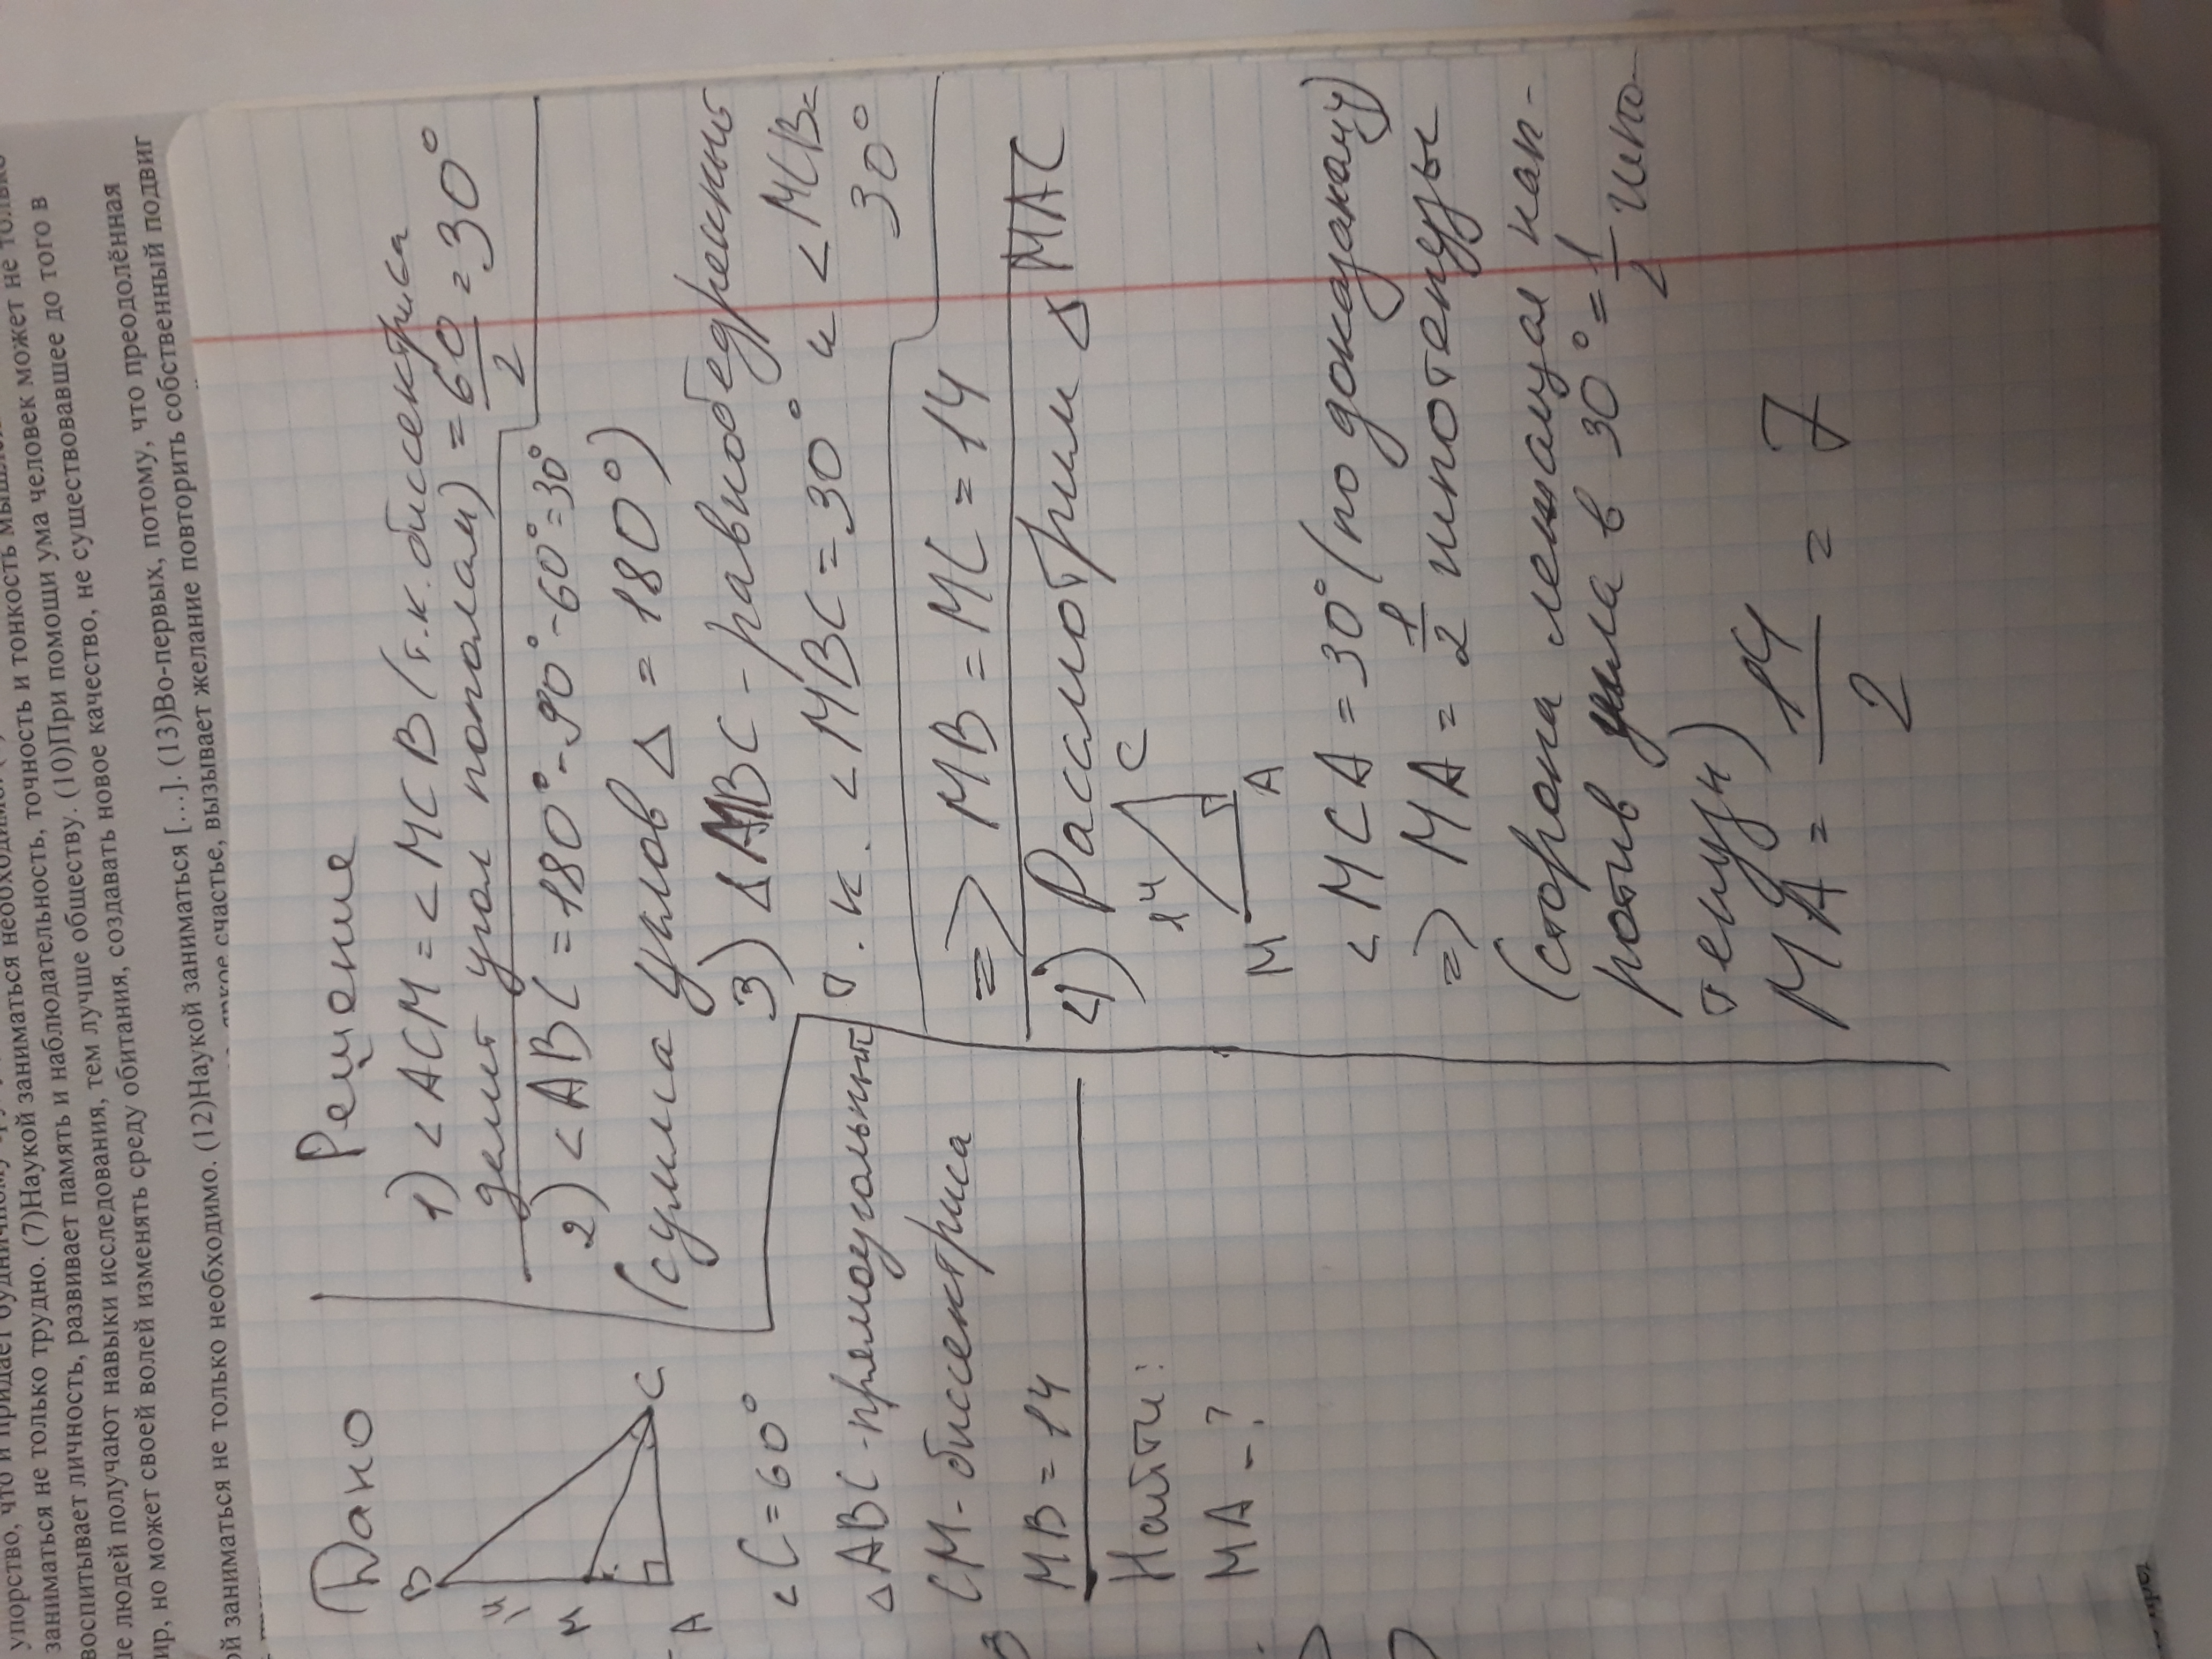 упорство, что и придаёт будничному
заниматься не только трудно. (7)Наукой заниматься необходимо.
воспитывает личность, развивает память и наблюдательность, точность и тонкость
людей получают навыки исследования, тем лучше обществу. (10)При помощи ума человек может не только
но может своей волей изменять среду обитания, создавать новое качество, не существовавшее до того в
заниматься не только необходимо. (12)Наукой заниматься […]. (13)Во-первых, потому, что преодолённая
счастье, вызывает желание повторить собственный подвиг
Дано
B
14
M
A
C
<C=60°
△ABC-прямоугольный
CM-биссектриса
MB=14
Найти:
MA-?
Решение
1) <ACM=<MCB(т.к. биссектриса
делит угол пополам)=60/2=30°
2) <ABC=180°-90°-60°=30°
(сумма углов △=180°)
3) △MBC-равнобедренный
т.к. <MBC=30° и <MCB=
30°
=> MB=MC=14
4) Рассмотрим △MAC
14
C
M
A
<MCA=30°(по доказаному)
=> MA=1/2 гипотенузы
(сторона лежащая нап-
ротив угла в 30°=1/2 гипо-
тенузы)
MA=14/2=7